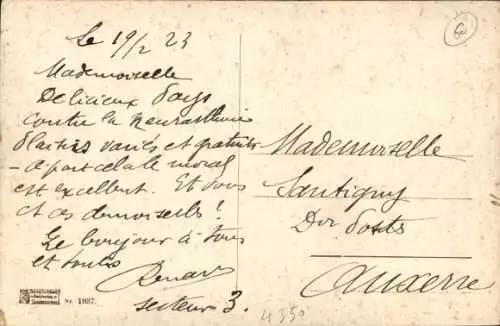 Le 19/2 23
Mademoiselle
Delicieux Pays
contre la neurasthenie
Plaisirs variés et gratuits
- à part cela le moral
est excellent. Et vous
et ces demoiselles ?
Le bonjour à tous
et toutes
Renard
secteur 3.
Mademoiselle
Santigny
Des Postes
Auxerre
Nr. 1887.
4350